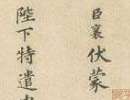 臣襄伏蒙
陛下特遣